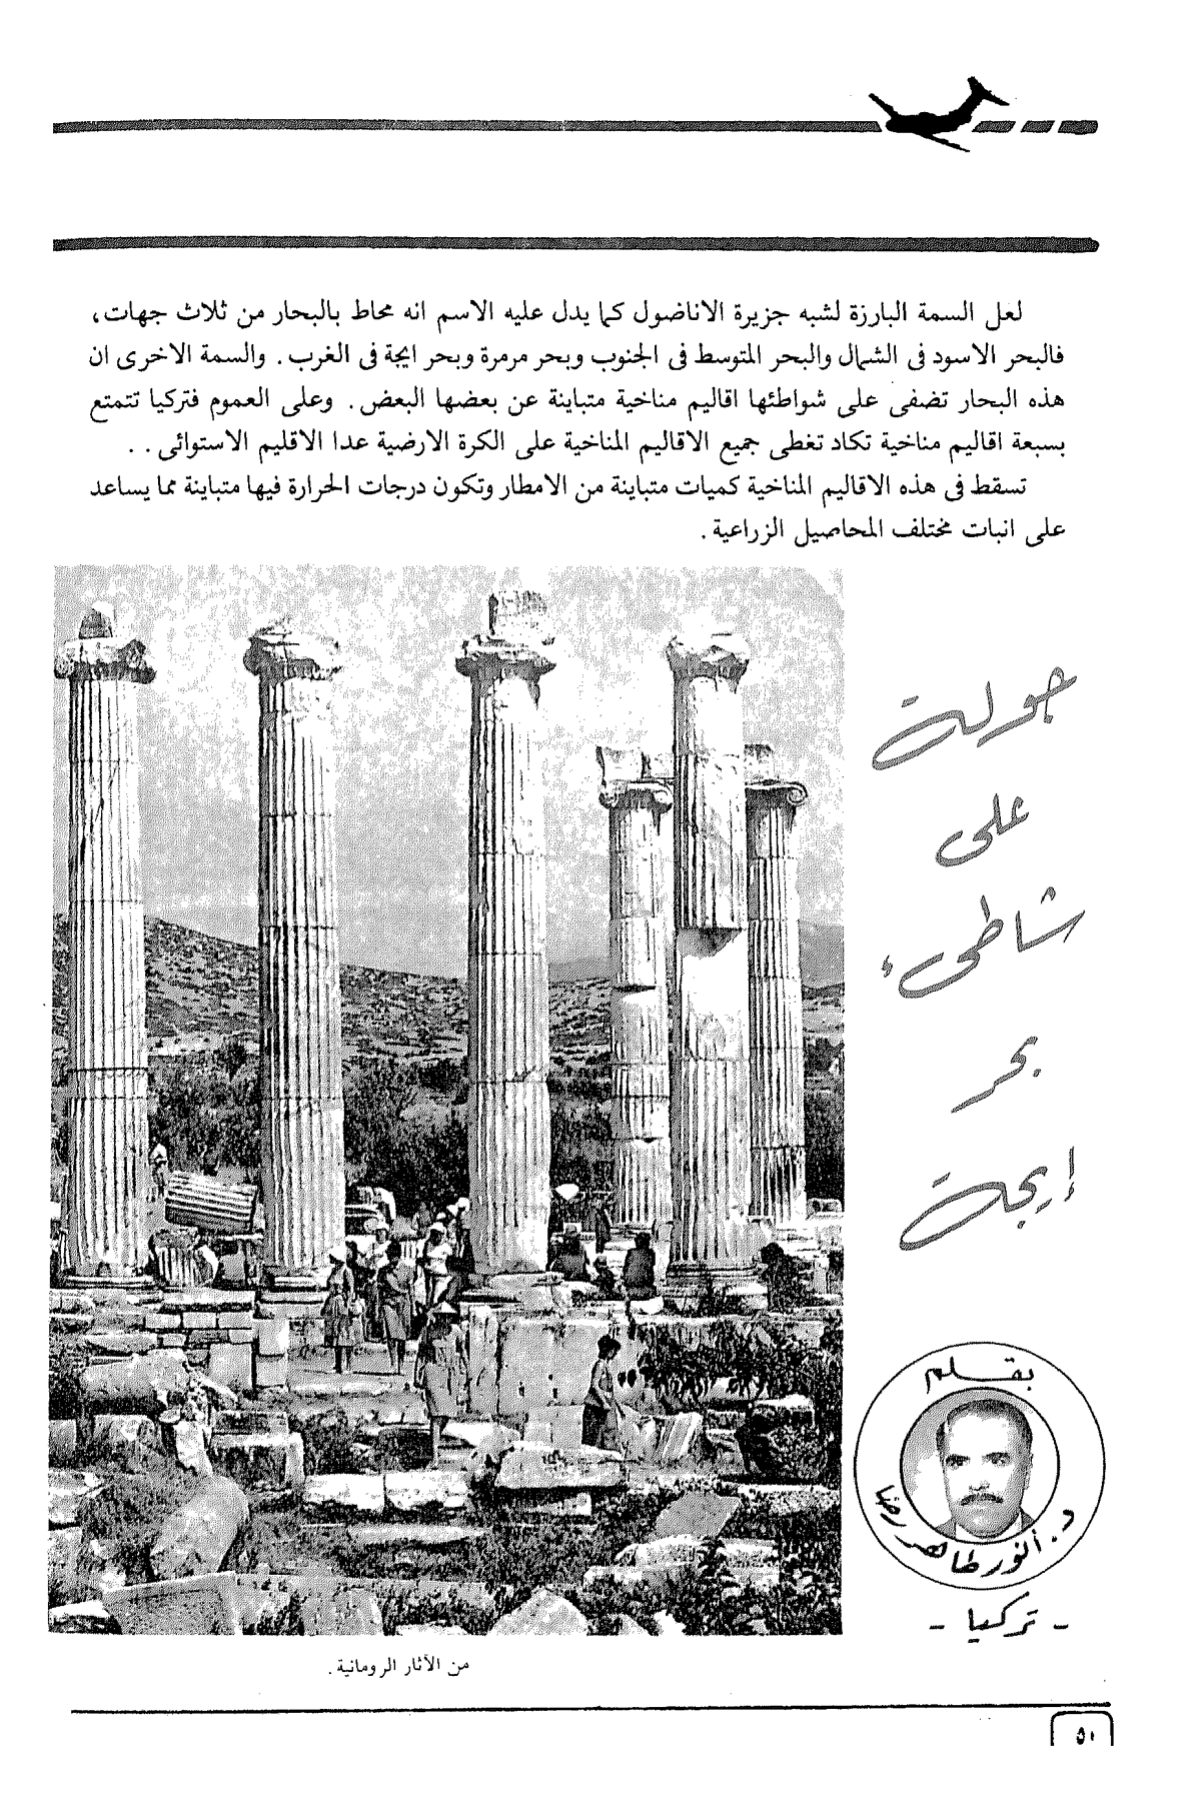 لعل السمة البارزة لشبه جزيرة الاناضول كما يدل عليه الاسم انه محاط بالبحار من ثلاث جهات،
فالبحر الاسود فى الشمال والبحر المتوسط فى الجنوب وبحر مرمرة وبحر ايجة فى الغرب. والسمة الاخرى ان
هذه البحار تضفى على شواطئها اقاليم مناخية متباينة عن بعضها البعض. وعلى العموم فتركيا تتمتع
بسبعة اقاليم مناخية تكاد تغطى جميع الاقاليم المناخية على الكرة الارضية عدا الاقليم الاستوائى . .
تسقط فى هذه الاقاليم المناخية كميات متباينة من الامطار وتكون درجات الحرارة فيها متباينة مما يساعد
على انبات مختلف المحاصيل الزراعية .
جولة
على
شاطىء
بحر
إيجة
بقلم
د. أنور طاهر رضا
- تركيا -
من الآثار الرومانية .
٥١